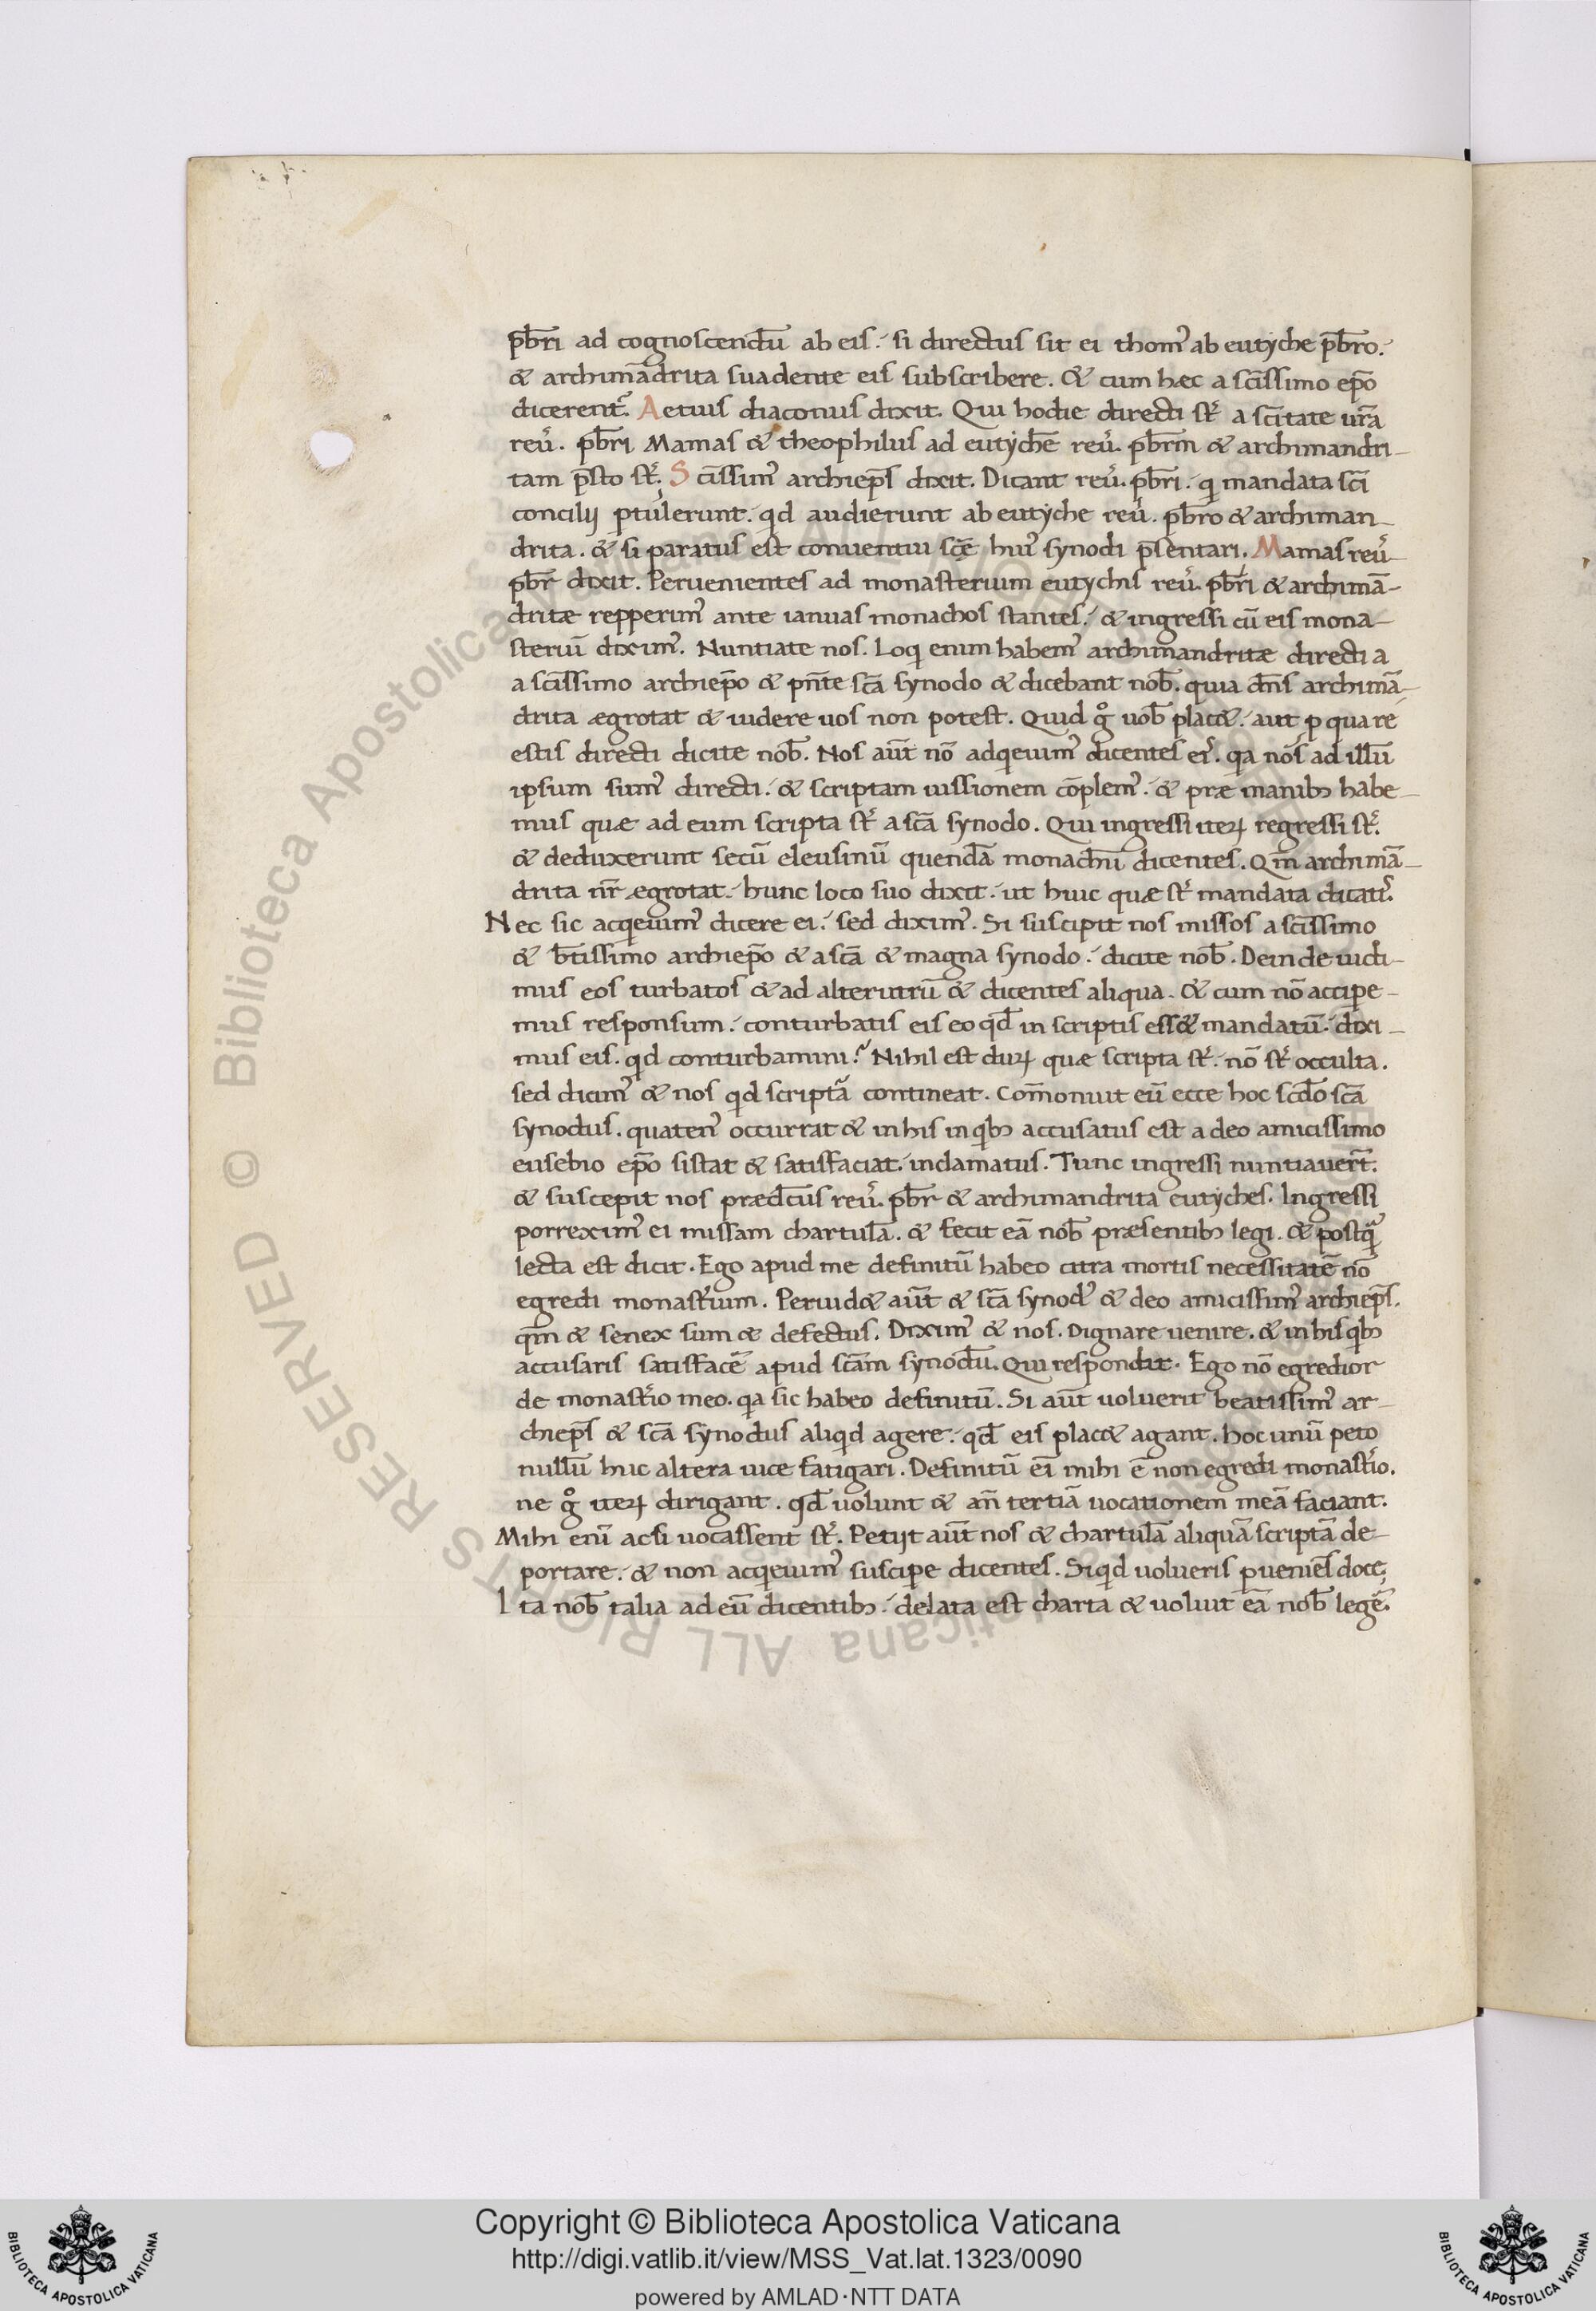 pb̄ri ad cognoscendū ab eis. si directus sit ei thom᾽ ab eutyche pb̄ro.
& archimādrita suadente eis subscribere. & cum hæc a scīssimo ep̄o
dicerent᾽. Aetius diaconus dixit. Qui hodie directi st᾽ a scītate ur̄a
reu᾽. pb̄ri Mamas & theophilus ad eutychē reu᾽. pb̄rm & archimandri-
tam p̄sto st᾽. Scīssim᾽ archiep̄s dixit. Dicant reu᾽. pb̄ri. qi mandata scī
concilij ptulerunt. qd audierunt ab eutyche reu᾽. pb̄ro & archiman-
drita. & si paratus est conuentui scę̄ hui᾽ synodi p̄sentari. Mamas reu᾽
pb̄r dixit. Peruenientes ad monasterium eutychis reu᾽. pb̄ri & archimā-
dritæ repperim᾽ ante ianuas monachos stantes. & ingressi cū eis mona-
steriū dixim᾽. Nuntiate nos. Loqi enim habem᾽ archimandritæ directi a
a scīssimo archiep̄o & pn̄te scā synodo & dicebant nob̄. quia dn̄s archimā-
drita ægrotat & uidere uos non potest. Quid g° uob̄ plac&. aut p qua re
estis directi dicite nob̄. Nos aūt nō adqieuim᾽ dicentes ei᾽. qa nos ad illū
ipsum sum᾽ directi. & scriptam iussionem cōplem᾽. & præ manibꝫ habe-
mus quæ ad eum scripta st᾽ a scā synodo. Qui ingressi iteꝝ regressi st᾽.
& deduxerunt secū eleusinū quendā monachū dicentes. Qm̄ archimā-
drita nr̄ ægrotat. hunc loco suo dixit. ut huic quæ st᾽ mandata dicat᾽.
Nec sic acqieuim᾽ dicere ei. sed dixim᾽. Si suscipit nos missos a scīssimo
& b̄tissimo archiep̄o & a scā & magna synodo. dicite nob̄. Deinde uidi-
mus eos turbatos & ad alterutrū & dicentes aliqua. & cum nō accipe-
mus responsum. conturbatis eis eo qd̄ in scriptis ess& mandatū. dixi-
mus eis. qd conturbamini? Nihil est duꝝ quæ scripta st᾽. nō st᾽ occulta.
sed dicim᾽ & nos qd scriptā contineat. Com̄onuit eū ecce hoc scd̄o scā
synodus. quaten᾽ occurrat & in his in qbꝫ accusatus est a deo amicissimo
eusebio ep̄o sistat & satisfaciat. inclamatus. Tunc ingressi nuntiauert̄.
& suscepit nos prædc̄us reu᾽. pb̄r & archimandrita eutyches. Ingressi
porrexim᾽ ei missam chartulā. & fecit eā nob̄ præsentibꝫ legi. & postqā
lecta est dicit. Ego apud me definitū habeo citra mortis necessitatē nō
egredi monast᾽ium. Peruid& aūt & scā synod᾽ & deo amicissim᾽ archiep̄s.
qm̄ & senex sum & defectus. Dixim᾽ & nos. Dignare uenire. & in his qbꝫ
accusaris satisfacē apud scām synodū. Qui respondit. Ego nō egredior
de monast᾽io meo. qa sic habeo definitū. Si aūt uoluerit beatissim᾽ ar-
chiep̄s & scā synodus aliqid agere. qd̄ eis plac& agant. hoc unū peto
nullū huc altera uice fatigari. Definitū eī mihi ē non egredi monast᾽io.
ne g° iteꝝ dirigant. qd̄ uolunt & an̄ tertiā uocationem meā faciant.
Mihi enī acsi uocassent st᾽. Petijt aūt nos & chartulā aliquā scriptā de-
portare. & non acqieuim᾽ suscipe dicentes. Siqid uolueris pueniēs doce.
Ita nob̄ talia ad eū dicentibꝫ. delata est charta & uoluit eā nob̄ legē.
© Biblioteca Apostolica Vaticana ALL RIGHTS RESERVED
Copyright © Biblioteca Apostolica Vaticana
http://digi.vatlib.it/view/MSS_Vat.lat.1323/0090
powered by AMLAD·NTT DATA
BIBLIOTECA APOSTOLICA VATICANA
BIBLIOTECA APOSTOLICA VATICANA